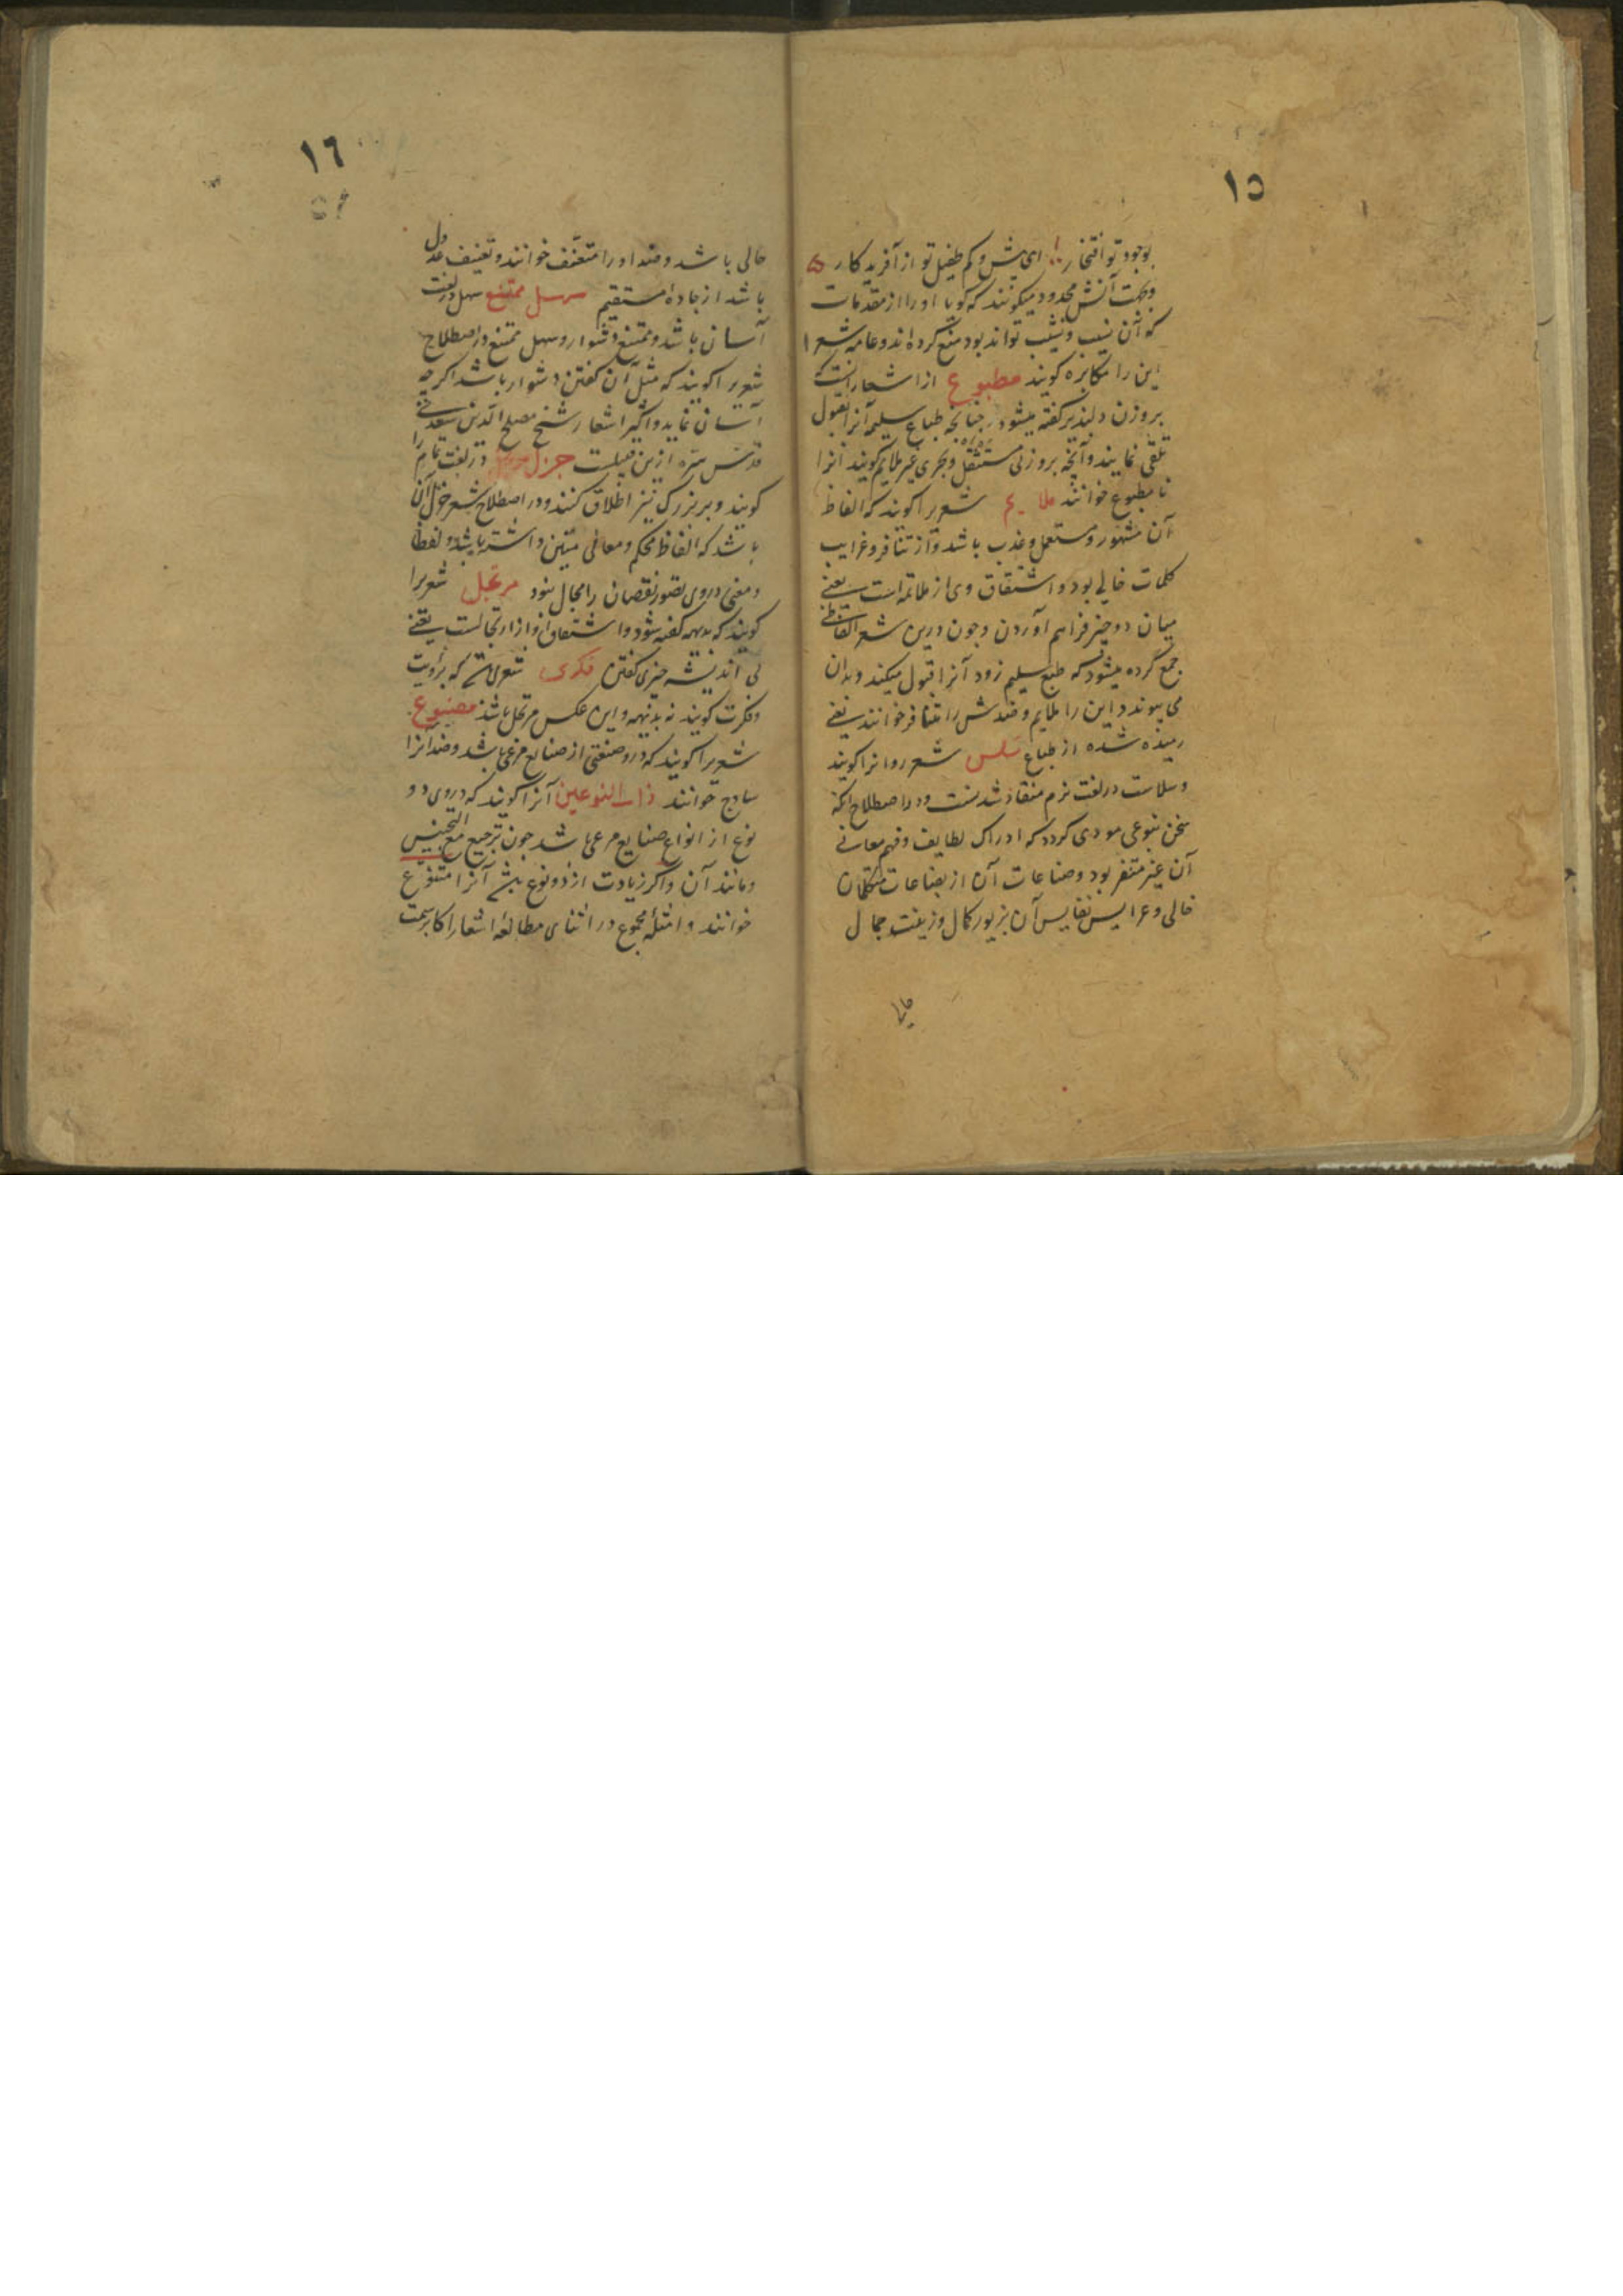 ١٥
بوجود تو افتخار ای بیش و کم طفیل تو از آفریدکار
وبجهت آنش محدود میکویند که کویا اورا از مقدمات
که آن نسیب و تشبیب تواند بود منع کرده اند و عامه شعرا
این را مکابره کویند مطبوع از اشعار آنست که
بروزن دلپذیر کفته میشود چنانچه طباع سلیم آنرا بقبول
تلقی نمایند و آنچه بروزنی مستثقل و بحری غیر ملایم کویند آنرا
نامطبوع خوانند ملایم شعریرا کویند که الفاظ
آن مشهور و مستعمل و عذب باشد و از تنافر و غرایب
کلمات خالی بود و اشتقاق وی از ملائمه است یعنی
میان دو چیز فراهم آوردن و چون درین شعر الفاظی
جمع کرده میشود که طبع سلیم زود آنرا قبول میکند و بدان
می پیوندد این را ملایم و ضدش را متنافر خوانند یعنی
رمیده شده از طباع سلس شعر روانرا کویند
و سلاست در لغت نرم و منقاد شدنست و در اصطلاح آنکه
سخن بنوعی مودی کردد که ادراک لطایف و فهم معانی
آن غیر متنفر بود و صناعات آن از بضاعات متکلمان
خالی و عرایس نفایس آن بزیور کمال و زینت جمال
١٦
حالی باشد و ضد اورا متعنف خوانند و تعنیف عدول
باشد از جاده مستقیم سهل ممتنع سهل در لغت
آسان باشد و ممتنع دشوار و سهل ممتنع در اصطلاح
شعریرا کویند که مثل آن کفتن دشوار باشد اکرچه
آسان نماید و اکثر اشعار شیخ مصلح الدین سعدی
قدس سره ازین قبیلست جزل در لغت تمام را
کویند و بر بزرک نیز اطلاق کنند و در اصطلاح شعر جزل آن
باشد که الفاظ محکم و معانی متین داشته باشد و لفظا
و معنی در وی تصور نقصان را مجال نبود مرتجل شعریرا
کویند که بدیهه کفته شود و اشتقاق او از ارتجالست یعنی
بی اندیشه چیزی کفتن فکری شعری که برویت
و فکرت کویند نه بدیهه و این عکس مرتجل باشد مصنوع
شعریرا کویند که درو صنعتی از صنایع مرعی باشد و ضد آنرا
ساده خوانند ذات النوعین آنرا کویند که در وی دو
نوع از انواع صنایع مرعی باشد چون ترصیع مع التجنیس
و مانند آن و اکر زیادت از دو نوع آنرا متنوع
خوانند و امثله مجموع در اثنای مطالعه اشعار اکابر سمت